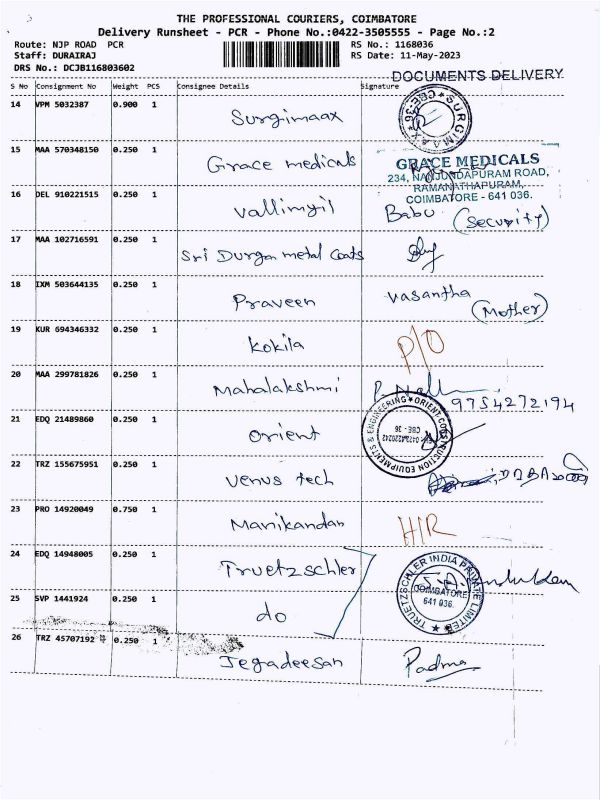 THE PROFESSIONAL COURIERS, COIMBATORE
Delivery Runsheet - PCR - Phone No.:0422-3505555 - Page No.:2
Route: NJP ROAD PCR RS No.: 1168036
Staff: DURAIRAJ RS Date: 11-May-2023
DRS No.: DCJB116803602
DOCUMENTS DELIVERY
S No Consignment No Weight PCS Consignee Details Signature
14 VPM 5032387 0.900 1 Surgimaax SURGIMAAX CBE-36
15 MAA 570348150 0.250 1 Grace medicals GRACE MEDICALS
234, NANJUNDAPURAM ROAD,
RAMANATHAPURAM,
COIMBATORE - 641 036.
16 DEL 910221515 0.250 1 Vallimyil Babu (Security)
17 MAA 102716591 0.250 1 Sri Durga metal Coats
18 IXM 503644135 0.250 1 Praveen Vasantha (Mother)
19 KUR 694346332 0.250 1 Kokila P/O
20 MAA 299781826 0.250 1 Mahalakshmi
9754272194
21 EDQ 21489860 0.250 1 Orient ORIENT CONSTRUCTION EQUIPMENTS & ENGINEERING
CBE - 36
22 TRZ 155675951 0.250 1 Venus tech
23 PRO 14920049 0.750 1 Manikandan H/R
24 EDQ 14948005 0.250 1 Truetzschler TRUETZSCHLER INDIA PRIVATE LIMITED
COIMBATORE
641 036.
25 SVP 1441924 0.250 1 do
26 TRZ 45707192 0.250 1 Jegadeesan Padma